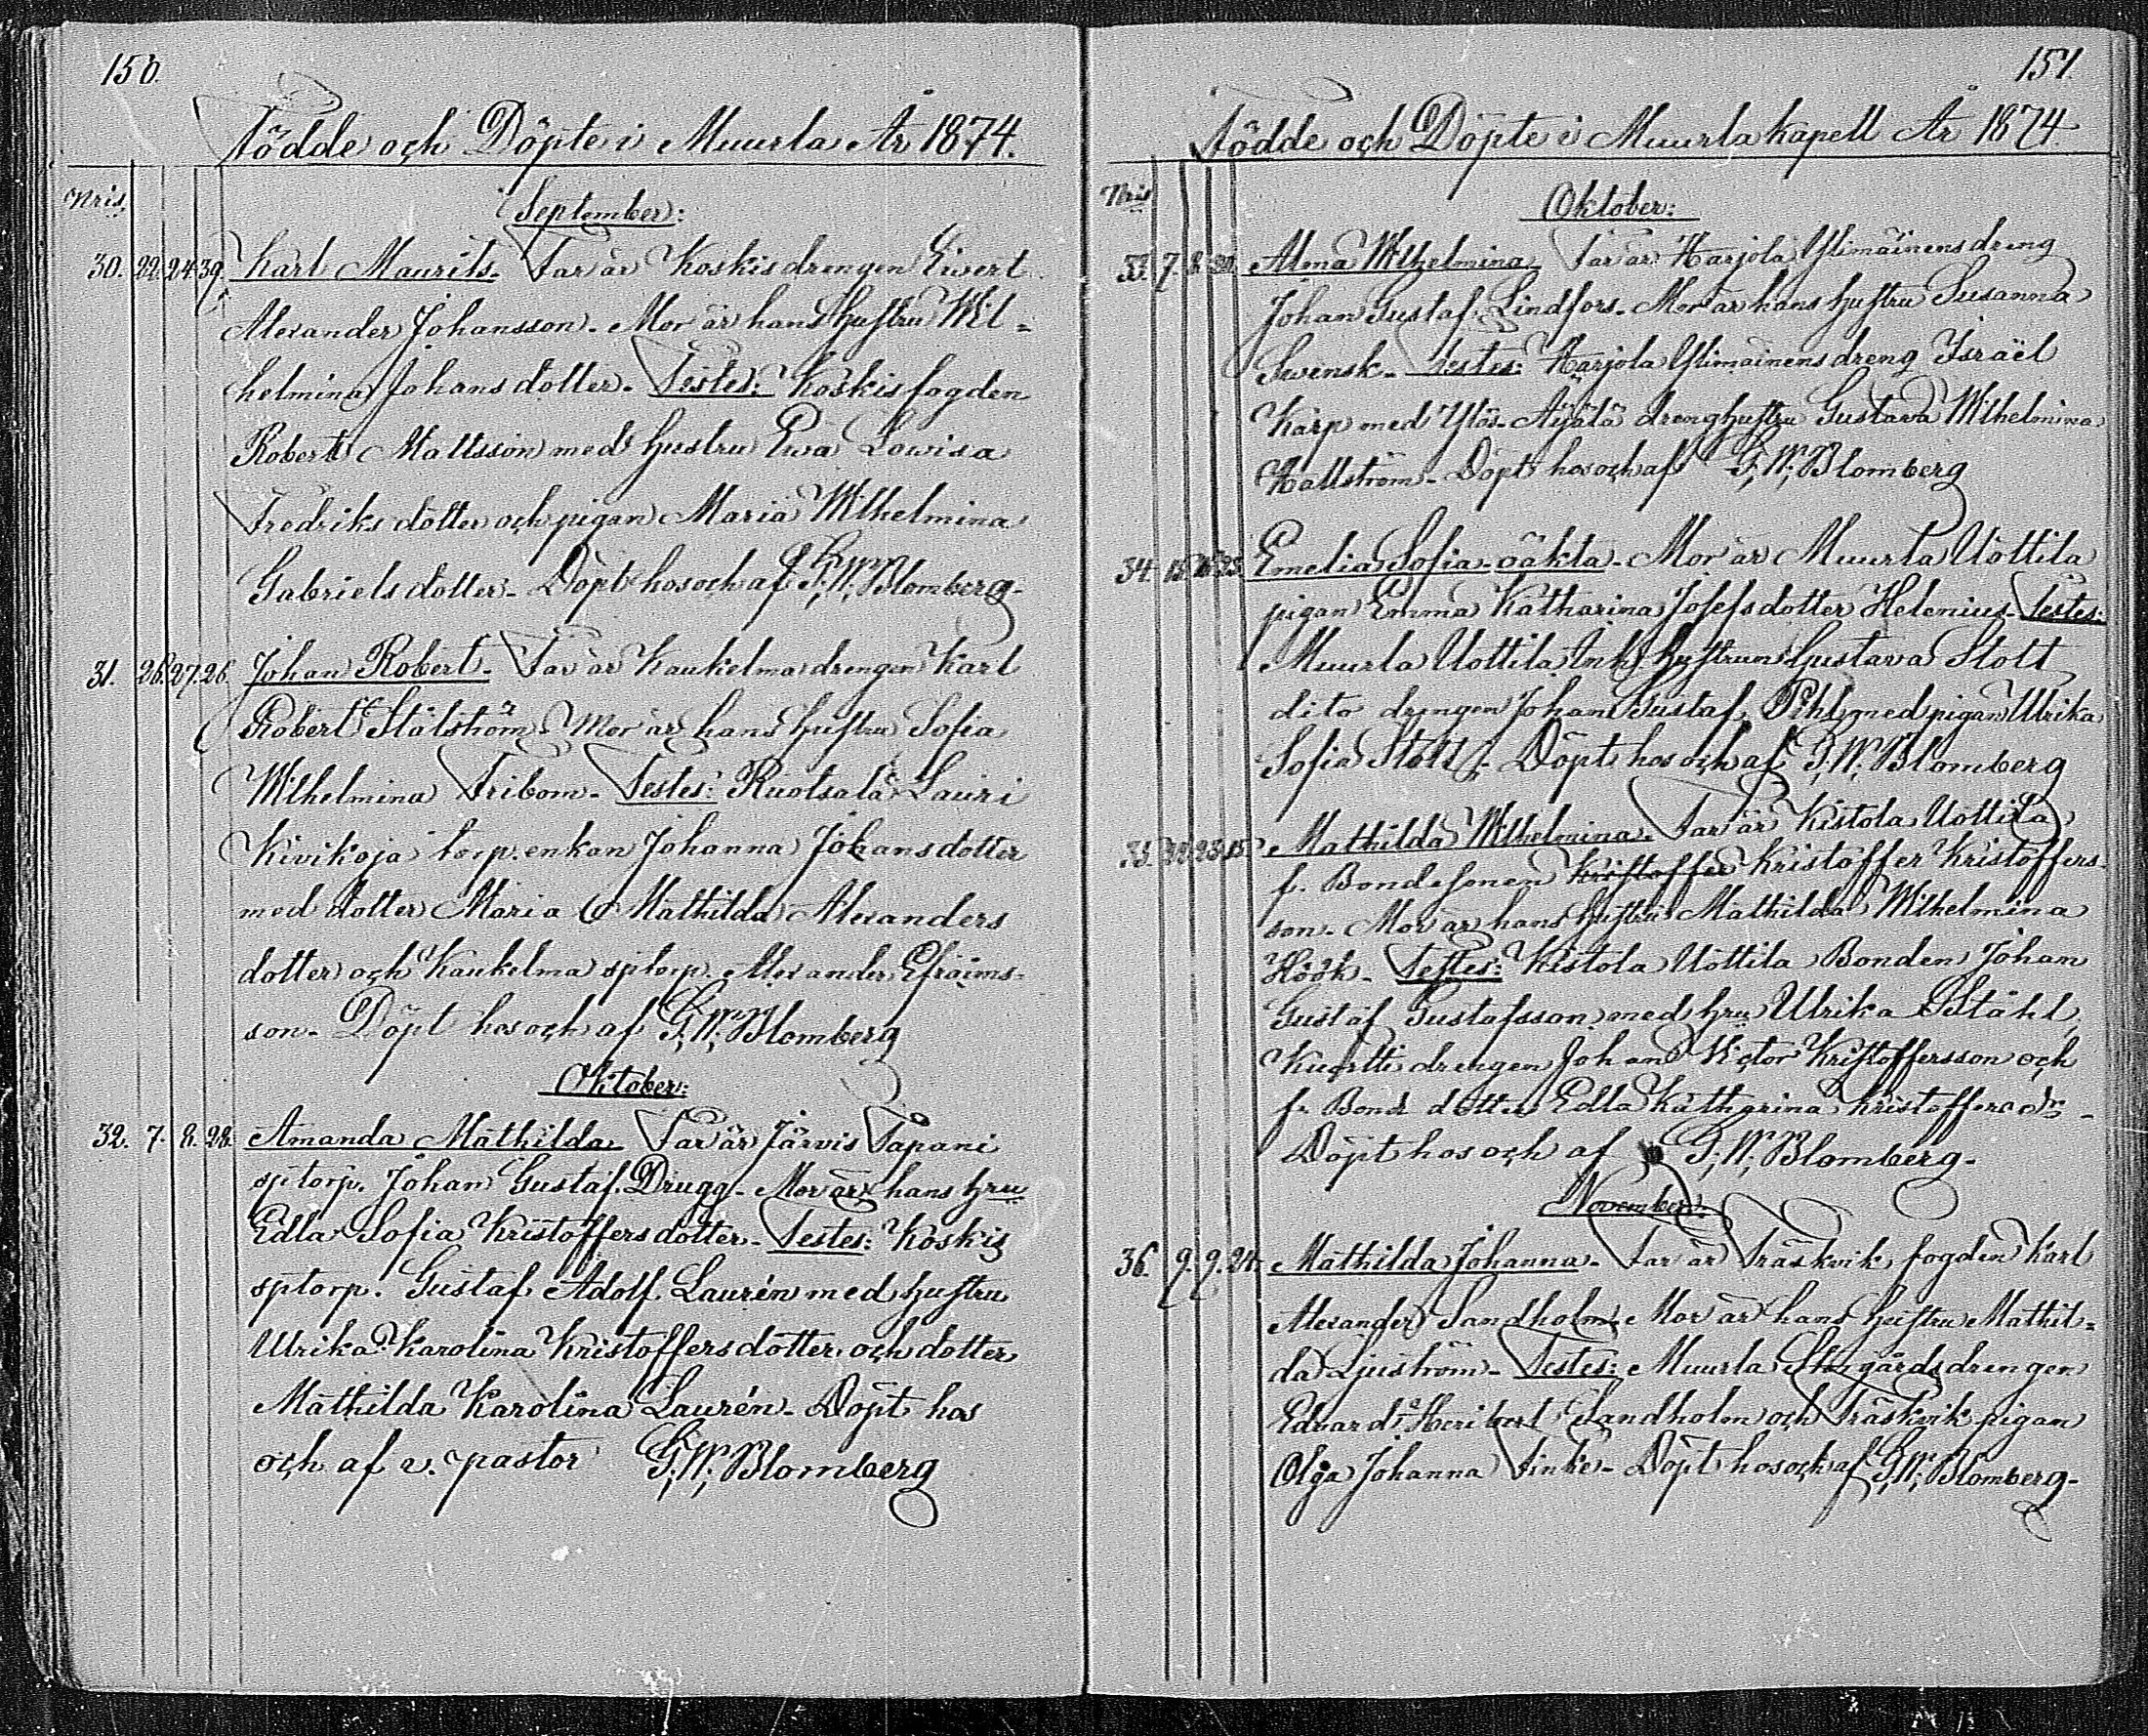 150.
Födde och Döpte i Muurla År 1874.
Nris.
September:
30. 22. 24. 39. Karl Maurits. Far är Koskis drengen Eivert
Alexander Johansson. Mor är hans hustru Wil=
helmina Johansdotter. Testes: Koskis fogden
Robert Mattsson med hustru Ewa Lowisa
Fredriksdotter och pigan Maria Wilhelmina
Gabrielsdotter. Döpt hos och af G. W. Blomberg.
31. 26. 27. 26. Johan Robert. Far är Kaukelma drengen Karl
Robert Stålström. Mor är hans hustru Sofia
Wilhelmina Fribom. Testes: Ruotsala Lauri
Kivikoja torp. enkan Johanna Johansdotter
med dotter Maria Mathilda Alexanders
dotter och Kaukelma sptorp. Alexander Efraims-
son. Döpt hos och af G. W. Blomberg
Oktober:
32. 7. 8. 28. Amanda Mathilda. Far är Järvis Tapani
sptorp. Johan Gustaf Drugg. Mor är hans hru
Edla Sofia Kristoffersdotter. Testes: Koskis
sptorp. Gustaf Adolf Laurén med hustru
Ulrika Karolina Kristoffersdotter och dotter
Mathilda Karolina Laurén. Döpt hos
och af v. pastor G. W. Blomberg
151.
Födde och Döpte i Muurla kapell År 1874.
Nris
Oktober:
33. 7. 8. Alma Wilhelmina. Far är Harjola Ylimäinens dreng
Johan Gustaf Lindfors. Mor är hans hustru Susanna
Swensk. Testes: Harjola Ylimäinens dreng Israël
Karp med Ylös-Äijälä drenghustru Gustava Wilhelmina
Hallström. Döpt hos och af G. W. Blomberg
34. Emelia Sofia oäkta. Mor är Muurla Uottila
pigan Emma Katharina Josefsdotter Helenius. Testes:
Muurla Uottila Inh. hustrun Gustava Stolt
dito drengen Johan Gustaf Pihl med pigan Ulrika
Sofia Stolt. Döpt hos och af G. W. Blomberg
35. 22. 23. Mathilda Wilhelmina. Far är Kistola Uottila
f. Bondesonen Kristoffer Kristoffer Kristoffers-
son. Mor är hans hustru Mathilda Wilhelmina
Höök. Testes: Kistola Uottila Bonden Johan
Gustaf Gustafsson med hru Ulrika Ståhl,
drengen Johan Victor Kristoffersson och
f. Bonde dotter Edla Katharina Kristoffersdr.
Döpt hos och af G. W. Blomberg.
November:
36. 9. 9. 24. Mathilda Johanna. Far är Träskvik fogden Karl
Alexander Sandholm. Mor är hans hustru Mathil=
da Ljuström. Testes: Muurla Storgårds drengen
Edvard Heribert Sandholm och Träskvik pigan
Olga Johanna Finke. Döpt hos och af G. W. Blomberg.